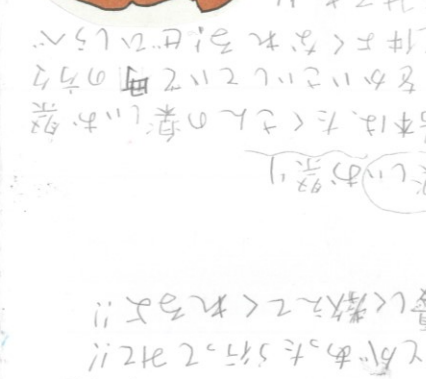 とがあったら行ってみて!!
優しく教えてくれるよ!!
楽しいお祭り
本は、たくさんの楽しいお祭
をかいさいしていて町の方々
と仲よくなれる!ぜひしらべ